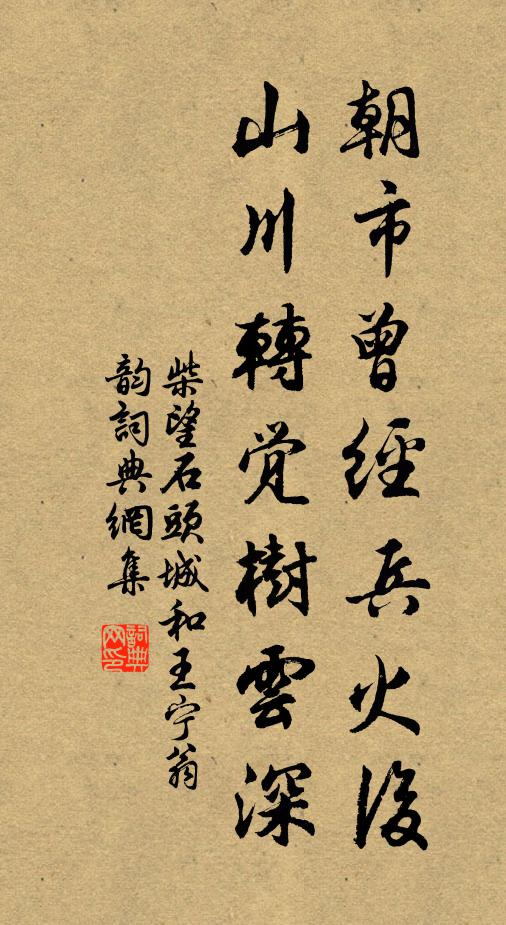 朝市曾經兵火後
山川轉覺樹雲深
柴望石頭城和王宁翁
韵詞典網集
詞典网印